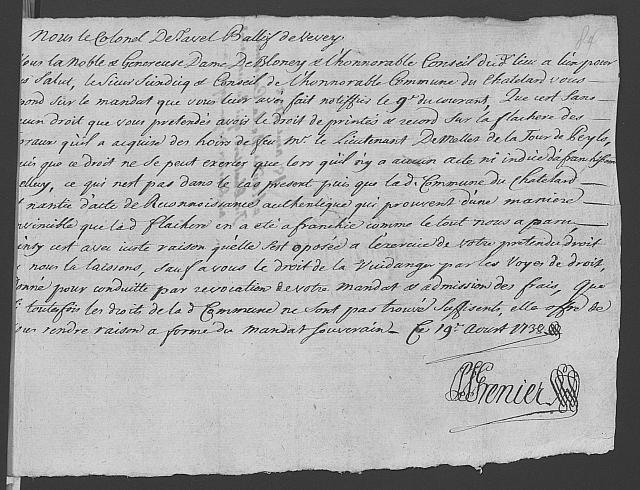 Nous le Colonel De Tavel Ballif de Vevey.
Vous la Noble & Genereuse Dame De Bloney & l'honnorable Conseil du d lieu a lier pour
us Salut, le Sieur Sindicq & Conseil de l'honnorable Commune du Chatelard vous
pond sur le mandat que vous leur aves fait notiffier le 9e du courant, Que cest sans
cun droit que vous pretendés avoir le droit de printés & record sur la flachere des
qu'il a acquise des hoirs de feu Mr. le Lieutenant De Melles de la Tour de Peylz,
uis que ce droit ne se peut exercer que lors qu'il n'y a aucun acte ni indice d'afranchissem
elluy, ce qui nest pas dans le cas present puis que la d. Commune du Chatelard
nantie d'acte de Reconnoissance authentique qui prouvent d'une maniere
invincible que la d flachere en a eté afranchie comme le tout nous a paru,
insy cest avec juste raison quelle sest oposée a lexercice de votre pretendu droit
nous la laissons, sauf a vous le droit de la Vuidange par les voyes de droit,
onne pour conduitte par revocation de votre mandat & admission des frais, Que
i toutefois les droits de la d Commune ne sont pas trouvé suffisents, elle offre de
ous rendre raison a forme du mandat souverain. Ce 19e Aoust 1738
Grenier